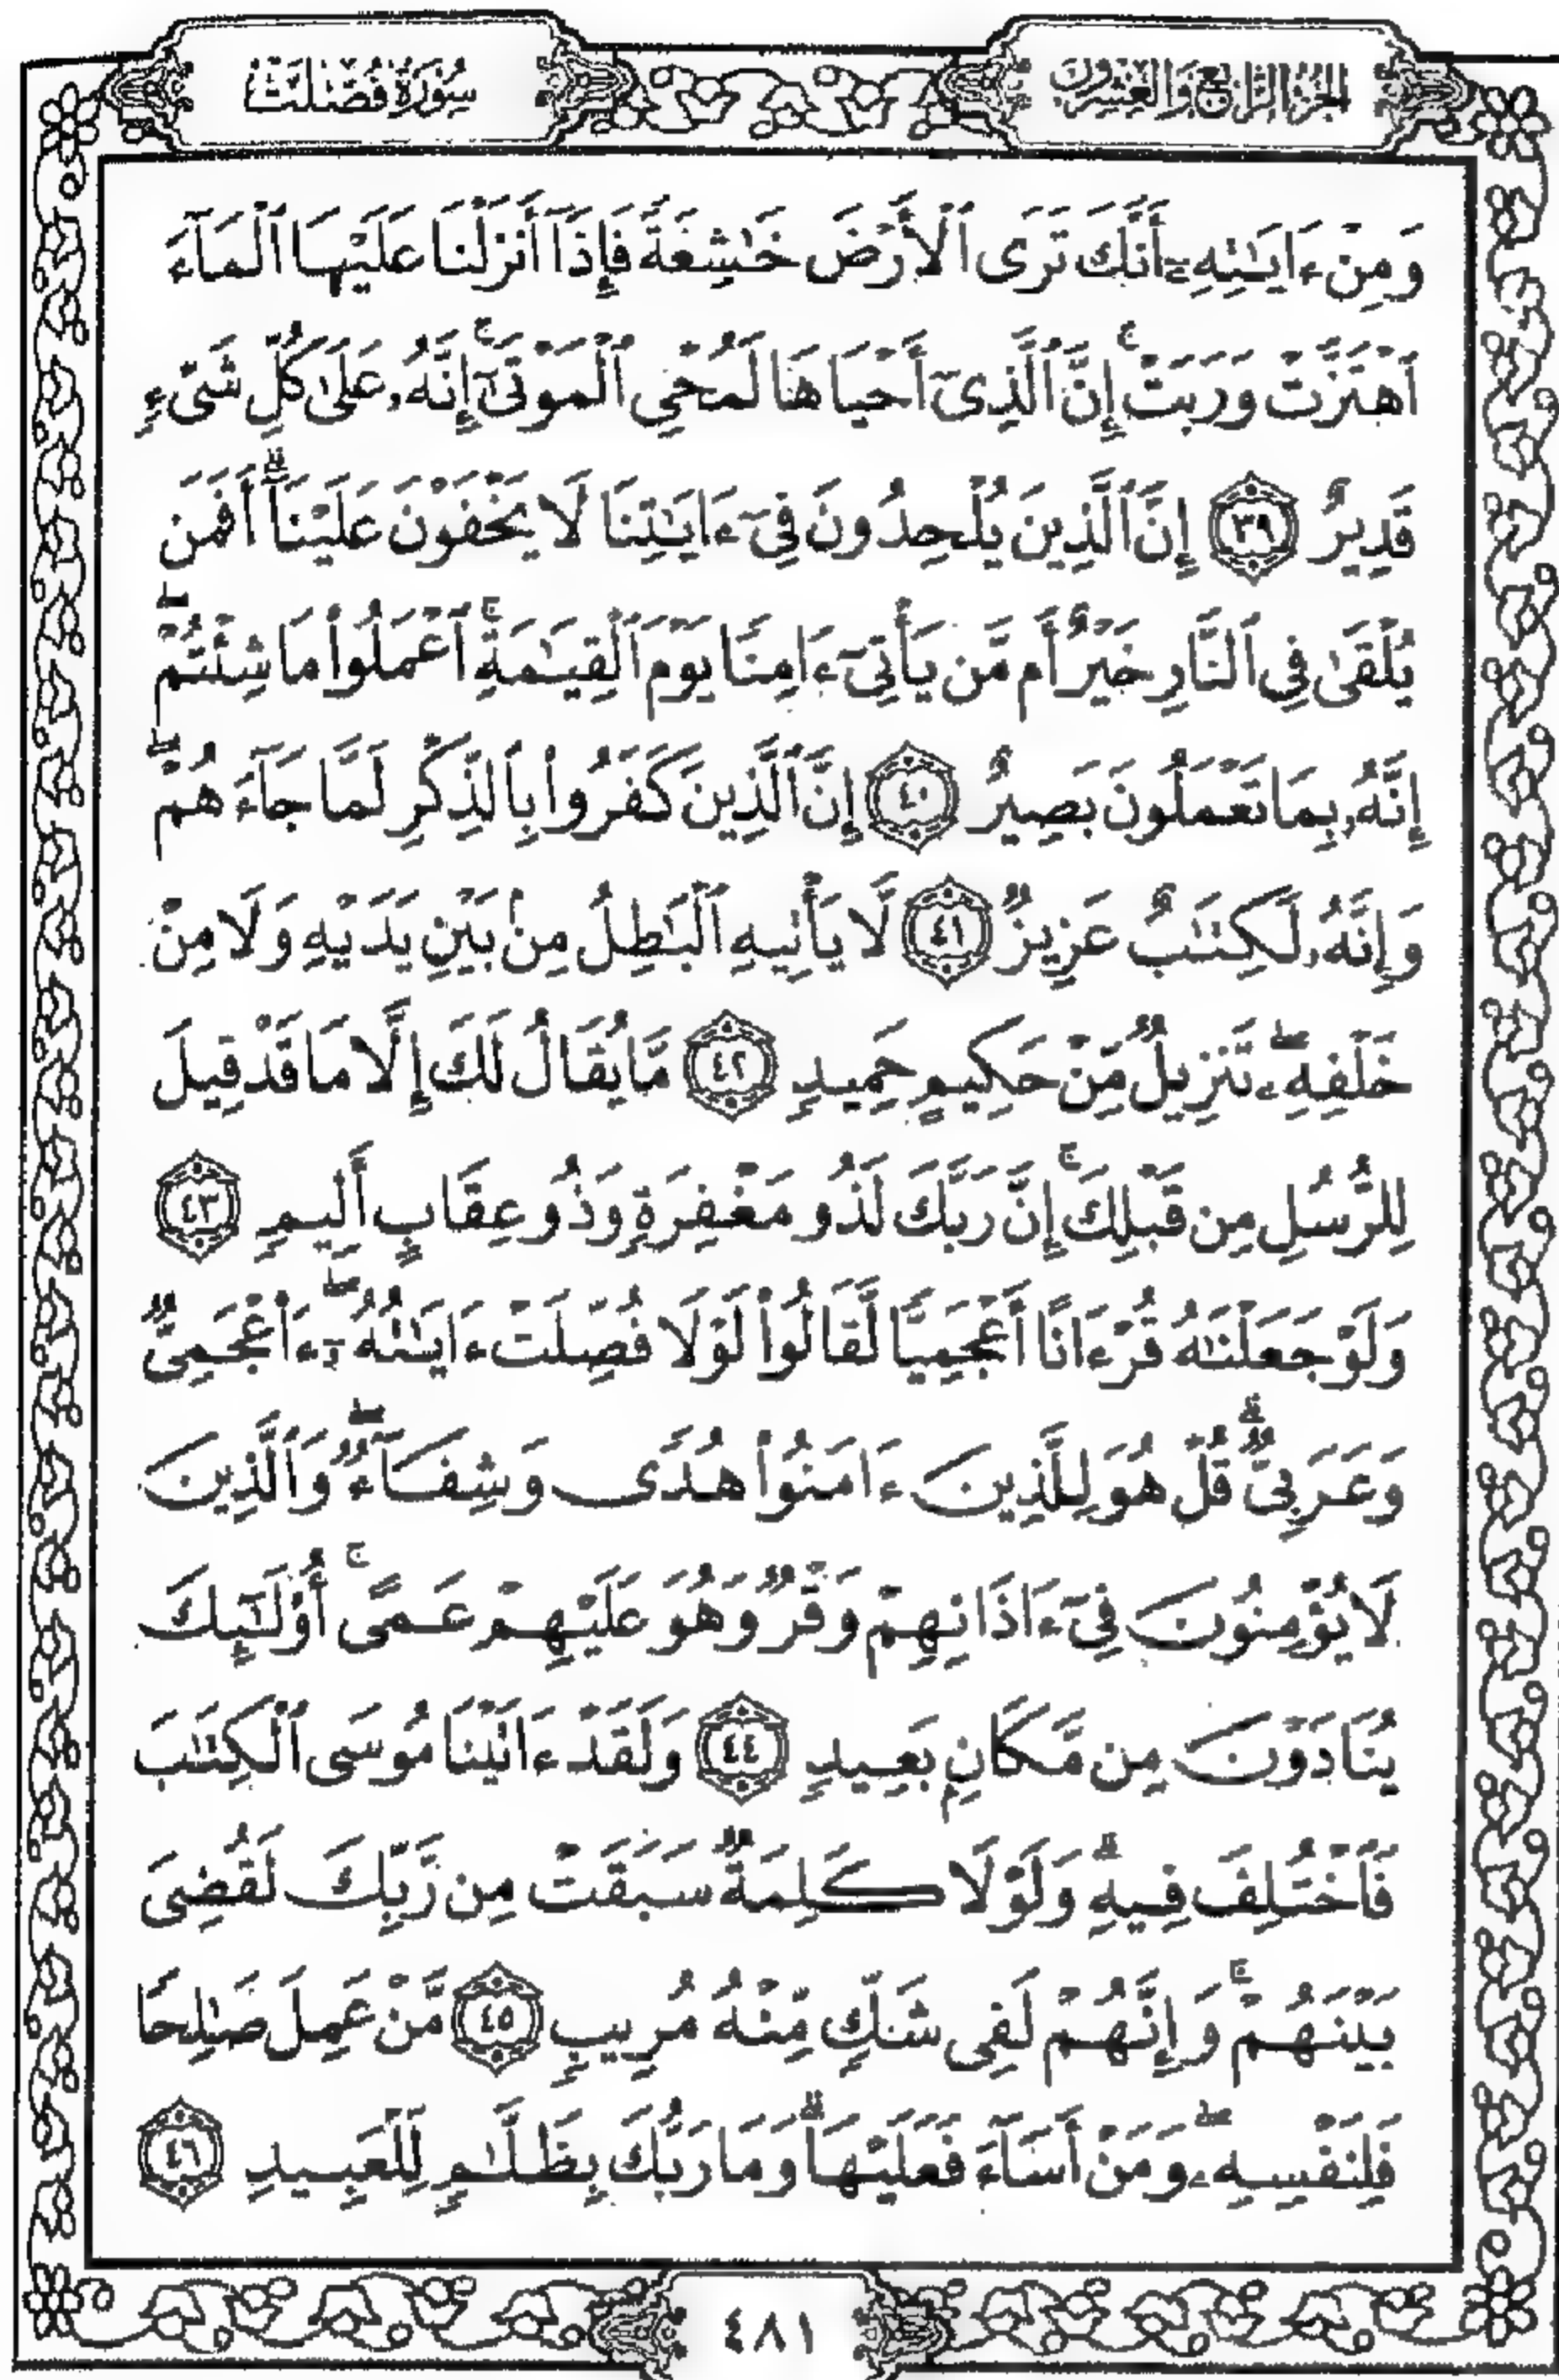 الجزء الرابع والعشرون
سورة فصلت
وَمِنْ ءَايَـٰتِهِۦٓ أَنَّكَ تَرَى ٱلْأَرْضَ خَـٰشِعَةً فَإِذَآ أَنزَلْنَا عَلَيْهَا ٱلْمَآءَ
ٱهْتَزَّتْ وَرَبَتْ ۚ إِنَّ ٱلَّذِىٓ أَحْيَاهَا لَمُحْىِ ٱلْمَوْتَىٰٓ ۚ إِنَّهُۥ عَلَىٰ كُلِّ شَىْءٍ
قَدِيرٌ ٣٩ إِنَّ ٱلَّذِينَ يُلْحِدُونَ فِىٓ ءَايَـٰتِنَا لَا يَخْفَوْنَ عَلَيْنَآ ۗ أَفَمَن
يُلْقَىٰ فِى ٱلنَّارِ خَيْرٌ أَم مَّن يَأْتِىٓ ءَامِنًا يَوْمَ ٱلْقِيَـٰمَةِ ۚ ٱعْمَلُوا۟ مَا شِئْتُمْ ۖ
إِنَّهُۥ بِمَا تَعْمَلُونَ بَصِيرٌ ٤٠ إِنَّ ٱلَّذِينَ كَفَرُوا۟ بِٱلذِّكْرِ لَمَّا جَآءَهُمْ ۖ
وَإِنَّهُۥ لَكِتَـٰبٌ عَزِيزٌ ٤١ لَّا يَأْتِيهِ ٱلْبَـٰطِلُ مِنۢ بَيْنِ يَدَيْهِ وَلَا مِنْ
خَلْفِهِۦ ۖ تَنزِيلٌ مِّنْ حَكِيمٍ حَمِيدٍ ٤٢ مَّا يُقَالُ لَكَ إِلَّا مَا قَدْ قِيلَ
لِلرُّسُلِ مِن قَبْلِكَ ۚ إِنَّ رَبَّكَ لَذُو مَغْفِرَةٍ وَذُو عِقَابٍ أَلِيمٍ ٤٣
وَلَوْ جَعَلْنَـٰهُ قُرْءَانًا أَعْجَمِيًّا لَّقَالُوا۟ لَوْلَا فُصِّلَتْ ءَايَـٰتُهُۥٓ ۖ ءَا۬عْجَمِىٌّ
وَعَرَبِىٌّ ۗ قُلْ هُوَ لِلَّذِينَ ءَامَنُوا۟ هُدًى وَشِفَآءٌ ۖ وَٱلَّذِينَ
لَا يُؤْمِنُونَ فِىٓ ءَاذَانِهِمْ وَقْرٌ وَهُوَ عَلَيْهِمْ عَمًى ۚ أُو۟لَـٰٓئِكَ
يُنَادَوْنَ مِن مَّكَانٍۭ بَعِيدٍ ٤٤ وَلَقَدْ ءَاتَيْنَا مُوسَى ٱلْكِتَـٰبَ
فَٱخْتُلِفَ فِيهِ ۗ وَلَوْلَا كَلِمَةٌ سَبَقَتْ مِن رَّبِّكَ لَقُضِىَ
بَيْنَهُمْ ۚ وَإِنَّهُمْ لَفِى شَكٍّ مِّنْهُ مُرِيبٍ ٤٥ مَّنْ عَمِلَ صَـٰلِحًا
فَلِنَفْسِهِۦ ۖ وَمَنْ أَسَآءَ فَعَلَيْهَا ۗ وَمَا رَبُّكَ بِظَلَّـٰمٍ لِّلْعَبِيدِ ٤٦
٤٨١